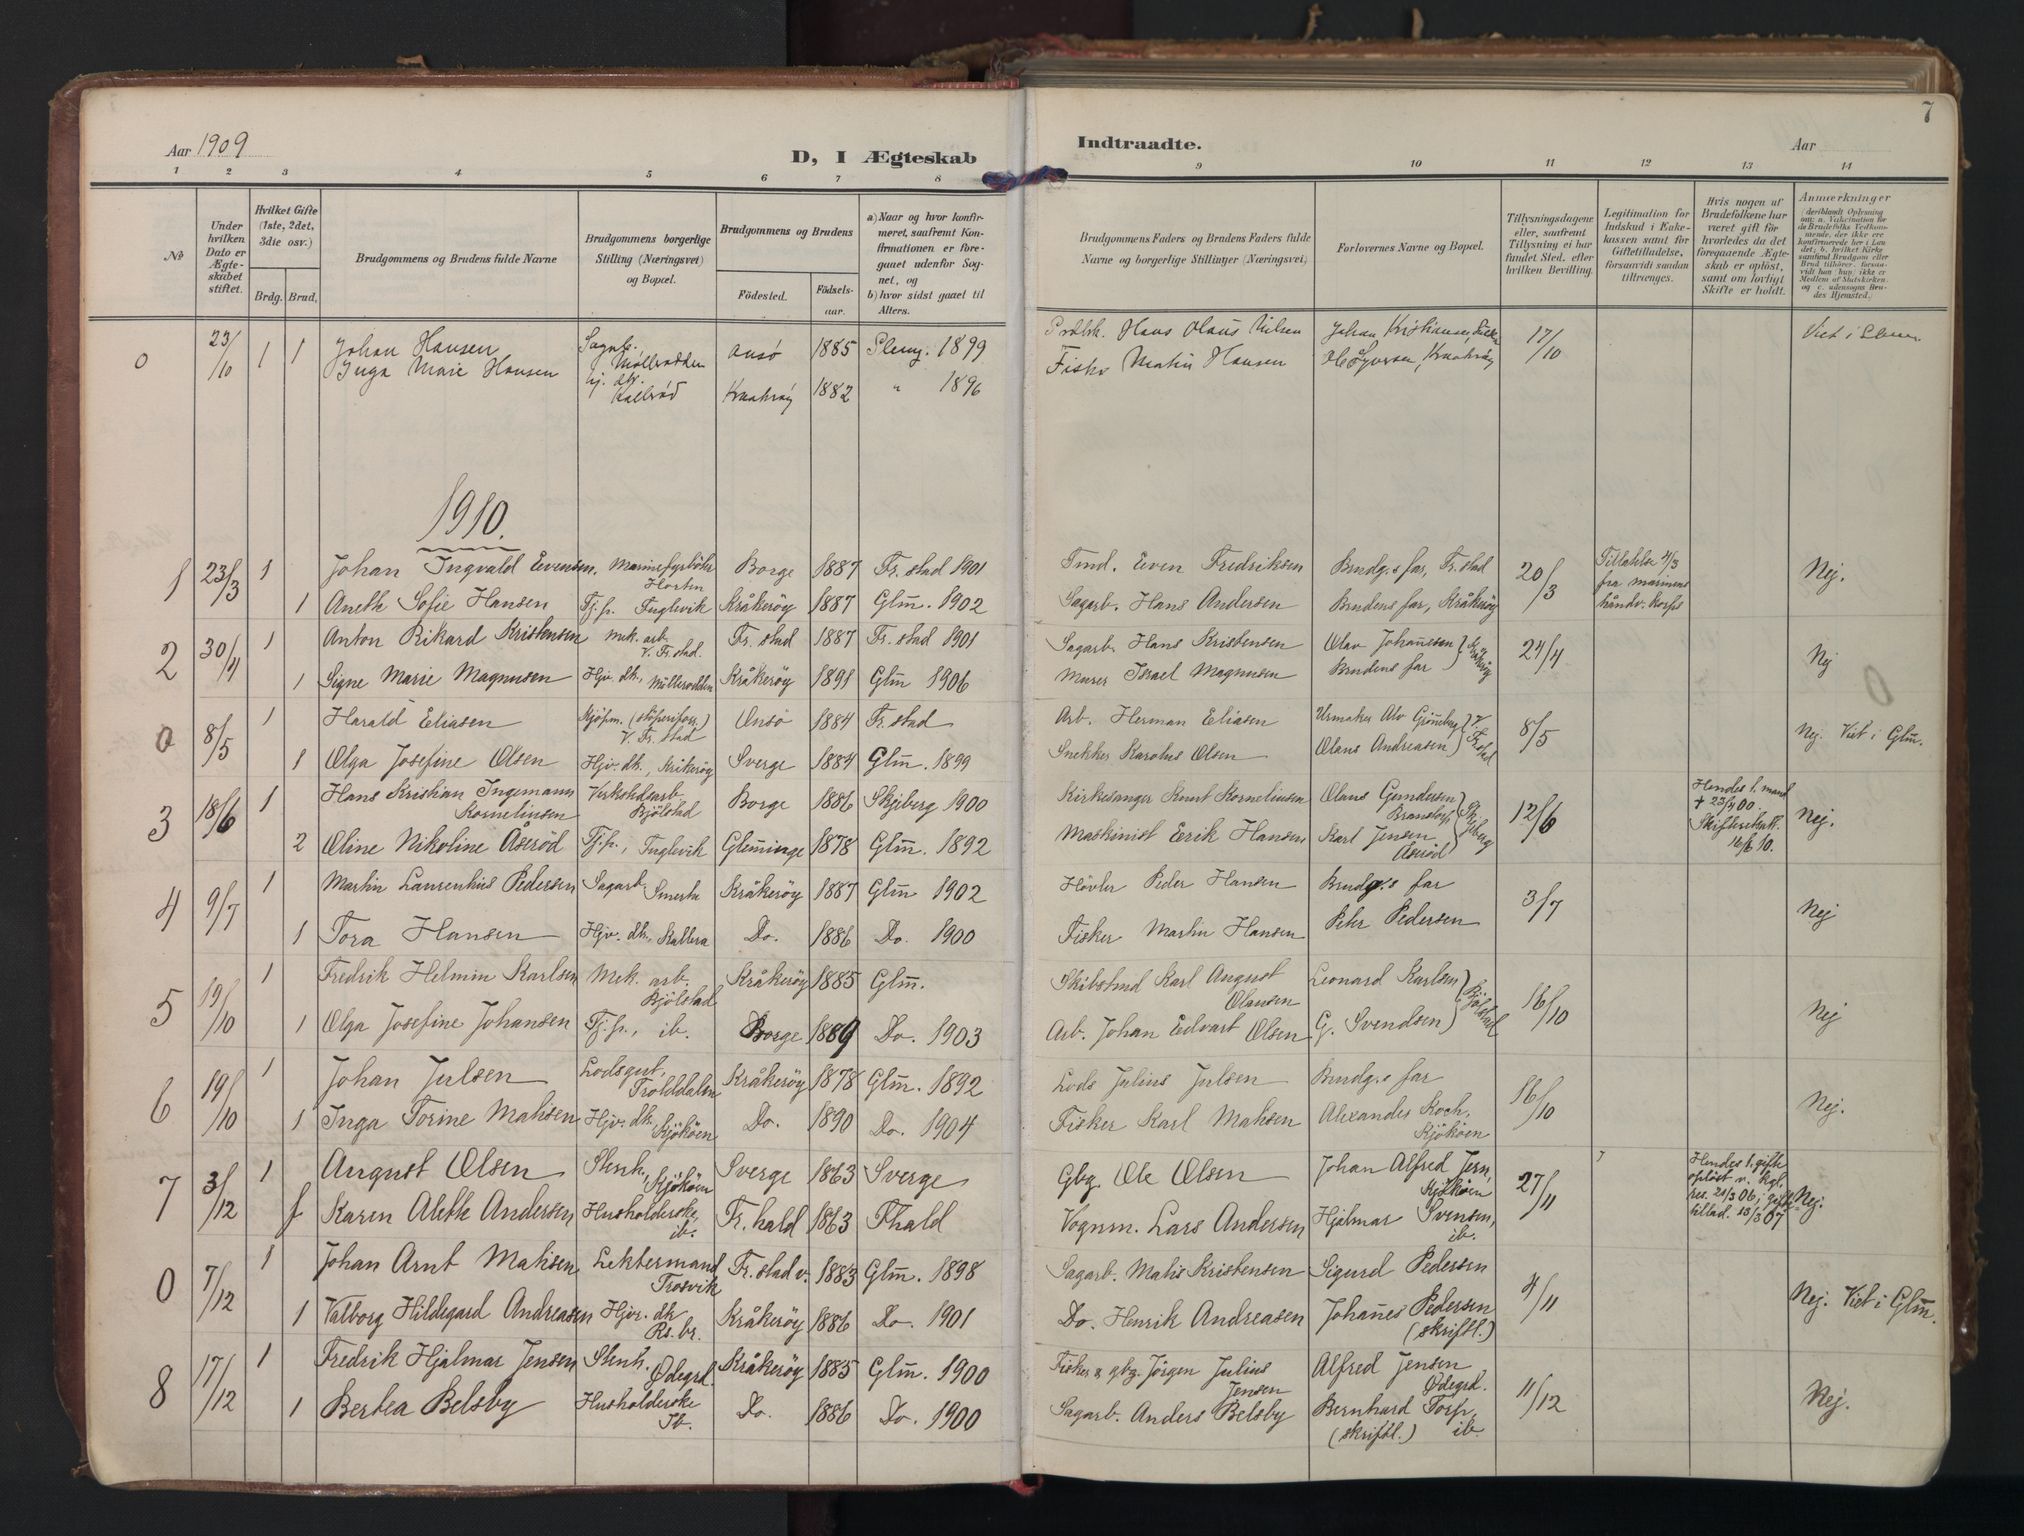 7
Aar 1909
D, I Ægteskab
Indtraadte.
Aar
1 2 3 4 5 6 7 8 9 10 11 12 13 14
No
Under hvilken Dato er Ægteskabet stiftet.
Hvilket Gifte (1ste, 2det, 3die osv.)
Brdg. Brud.
Brudgommens og Brudens fulde Navne
Brudgommens borgerlige Stilling (Næringsvei) og Bopæl.
Brudgommens og Brudens
Fødested.
Fødselsaar.
a) Naar og hvor konfirmeret, saafremt Konfirmationen er foregaaet udenfor Sognet, og
b) hvor sidst gaaet til Alters.
Brudgommens Faders og Brudens Faders fulde Navne og borgerlige Stillinger (Næringsvei)
Forlovernes Navne og Bopæl.
Tillysningsdagene eller, saafremt Tillysning ei har fundet Sted, efter hvilken Bevilling.
Legitimation for Indskud i Enkekassen samt for Giftetilladelse, forsaavidt saadan tiltrænges.
Hvis nogen af Brudefolkene har været gift før hvorledes da det foregaaende Ægteskab er opløst, samt om lovligt Skifte er holdt.
Anmærkninger
(deriblandt Oplysning om: a. Vakcination for de Brudefolks Vedkommende, der ikke ere konfirmerede her i Landet; b. hvilket Kirkesamfund Brudgom eller Brud tilhører, forsaavidt han (hun) ikke er Medlem af Statskirken, og c. udensogns Brudes Hjemsted.)
0 23/10 1 1 Johan Hansen Onsø 1885 Glemg. 1899 Hans Olaus Nilsen Johan Kristiansen 17/10 Viet i
Inga Marie Hansen Kallerød Kraakerøy 1882 " 1896 Fisker Martin Hansen Kraakerøy
1910.
1 23/3 1 Johan Ingvald Evensen. Marinefyrböter Horten Borge 1887 Fr.stad 1901 Tmd. Even Fredriksen Brudg.s far, Fr.stad 20/3 Tilladelse 4/3 fra marinens håndv. korps Nej.
1 Aneth Sofie Hansen Tj.p. Fuglevik Kråkeröy 1887 Glm. 1902 Sagarb. Hans Andersen Brudens far, Kråkeröy
2 30/4 1 Anton Rikard Kristensen Mek. arb. V. Fr.stad. Fr.stad 1887 Fr.stad 1901 Sagarb. Hans Kristensen Olav Johansen Kråkeröy 24/4 Nej
1 Signe Marie Magnusen Hjv. dtr., Möllerodden Kråkeröy 1891 Glm 1906 Murer Israel Magnusen Brudens far
0 8/5 1 Harald Eliasen Kjöpm. V. Fr.stad Onsö 1884 Fr.stad Arb. Herman Eliasen Urmaker Alv Gröneberg V. Fr.stad 8/5 Nej. Viet i Glm.
1 Olga Josefine Olsen Hjv. dtr., Kråkeröy Sverge 1884 Glm. 1899 Snekker Karolus Olsen Olaus Andreasen
3 18/6 1 Hans Kristian Ingemann Kornelinsen Bjölstad Borge 1886 Skjeberg 1900 Kirkesanger Knut Kornelinsen Olaus Gundersen Skjeberg 12/6 Hendes 1. mand + 23/9 00. Skifteretsatt. 16/6 10. Nej.
2 Oline Nikoline Åseröd Tj.p., Fuglevik Glemminge 1878 Glm. 1892 Maskinist Eerik Hansen Karl Jensen Åseröd
4 9/7 1 Martin Laurentius Pedersen Sagarb. Smerta Kråkeröy 1887 Glm 1902 Hövler Peder Hansen Brudg.s far 3/7 Nej
1 Tora Hansen Hjv. dtr., Kallera Do. 1886 Do. 1900 Fisker Martin Hansen Petr Pedersen
5 19/10 1 Fredrik Helmin Karlsen Mek. arb. Bjölstad Kråkeröy 1885 Glm. Skibstmd Karl August Olausen Leonard Karlsen Bjölstad 16/10 Nej
1 Olga Josefine Johansen Tj.p., ib. Borge 1889 Do. 1903 Arb. Johan Edvart Olsen G. Svendsen
6 19/10 1 Johan Julsen Lodsgut, Trolddalen Kråkeröy 1878 Glm. 1892 Lods Julius Julsen Brudg.s far 16/10 Nej.
1 Inga Torine Mathisen Hjv. dtr. Kjököen Do. 1890 Do. 1904 Fisker Karl Mathisen Alexander Koch, Kjököen
7 3/12 1 August Olsen Stenh., Kjököen Sverge 1863 Sverge Gbg. Ole Olsen Johan Alfred Jern, Kjököen 27/11 Hendes 1. gifte oplöst v. kgl. res. 21/3 06; gifte tillad. 18/3 07 Nej.
Karen Aleth Andersen Husholderske, ib. Fr.hald 1863 Fhald Vognm. Lars Andersen Hjalmar Svensen, ib.
0 7/12 1 Johan Arnt Mathisen Lektermand Trosvik Fr.stad v. 1883 Glm. 1898 Sagarb. Matis Kristensen Sigurd Pedersen 4/11 Nej. Viet i Glm.
1 Valborg Hildegard Andreasen Hjv. dtr Rs. br. Kråkeröy 1886 Do. 1901 Do. Henrik Andreasen Johanes Pedersen (skriftl.)
8 17/12 1 Fredrik Hjalmar Jensen Stenh. Ødegrd. Kråkeröy 1885 Glm. 1900 Fisker & gbg. Jörgen Julius Jensen Alfred Jensen Ødegrd. 11/12 Nej.
1 Bertea Belsby Husholderske Ib. Do. 1886 Do. 1900 Sagarb. Anders Belsby Bernhard Torp, ib. (skriftl.)